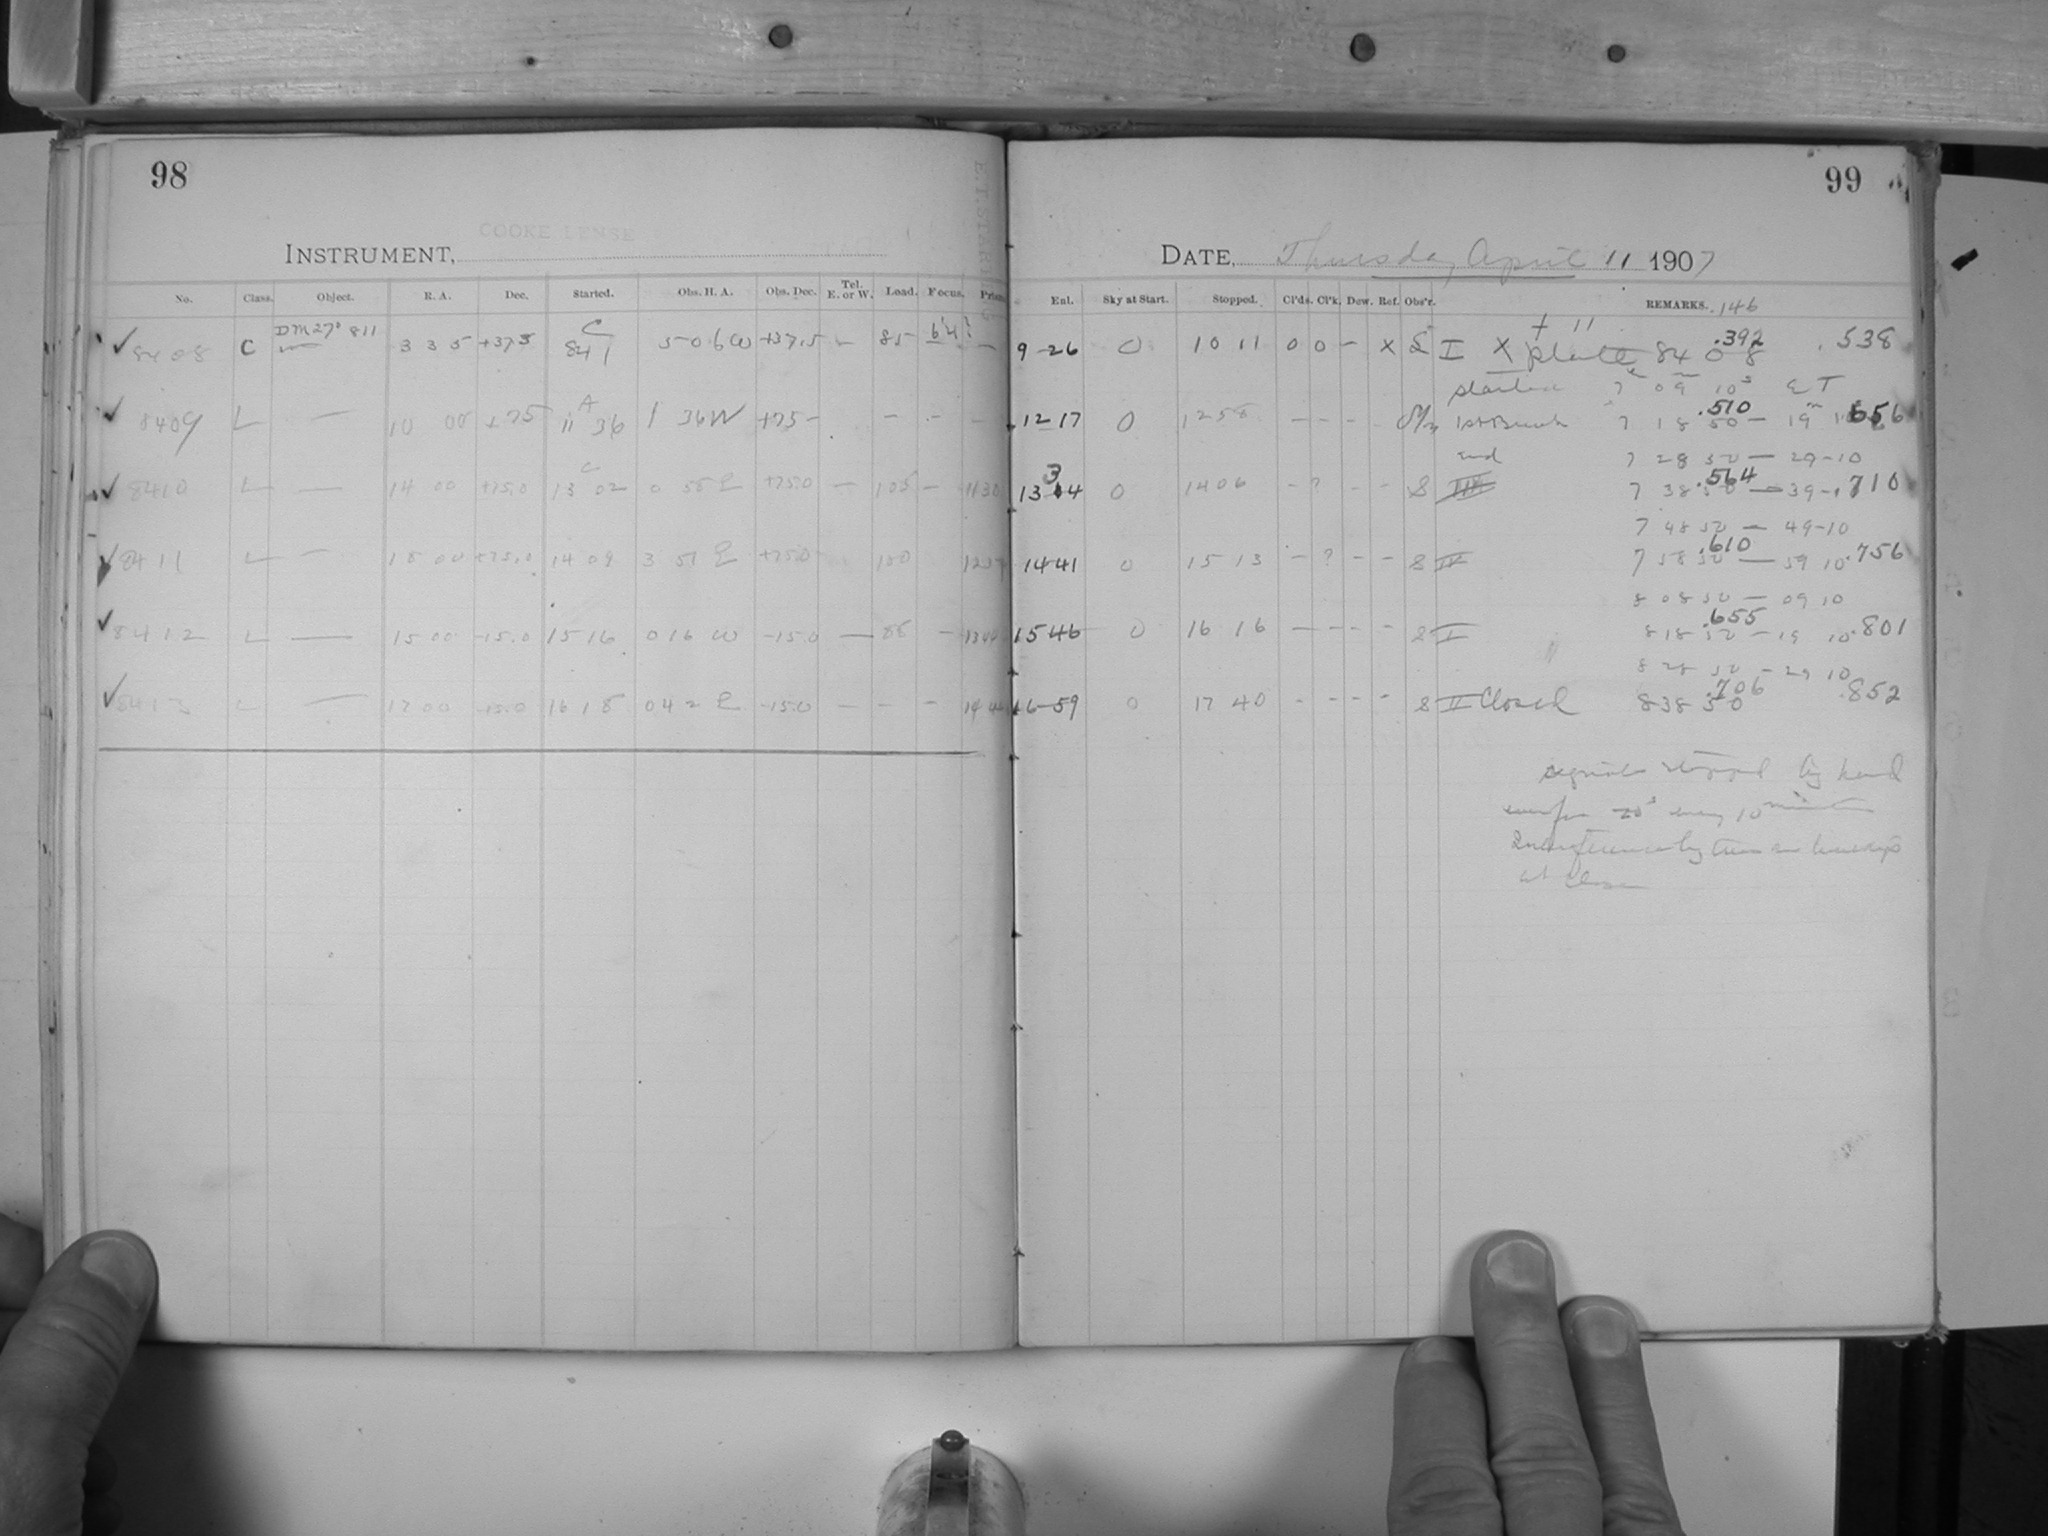 98
COOKE LENSE
INSTRUMENT,
No. Class. Object. R. A. Dec. Started. Obs. H. A. Obs. Dec. Tel. E. or W. Load. Focus.
8408 C DM 27° 811 3 35 +37.5 C 841 5 06 W +37.5 — 85 —
8409 L — 10 00 +75 A 11 36 1 36 W +75 — — — —
8410 L — 14 00 +15.0 C 13 02 0 58 E +15.0 — 105 — 1130
8411 L — 18 00 +75.0 14 09 3 51 E +75.0 100
8412 L — 15 00 -15.0 15 16 0 16 W -15.0 — 88 —
8413 L — 17 00 -15.0 16 18 0 42 E -15.0 — — —
99
DATE, Thursday, April 11 1907
Enl. Sky at Start. Stopped. Cl'ds. Cl'k. Dew. Ref. Obs'r. REMARKS. .146
9-26 0 10 11 0 0 — X S I X plate 8408 .392 .538
started 7 09 10s E T
12-17 0 12 58 — — — — 7 18 50 — 19 .510 .656
end 7 28 50 — 29-10
0 14 06 — ? — — S III 7 38 50 — 39-1 .564 .710
7 48 50 — 49-10
1441 0 15 13 — ? — — S II 7 58 50 — 59 10 .610 .756
8 08 50 — 09 10
1546 0 16 16 — — — — S I 8 18 50 — 19 10 .655 .801
8 28 50 — 29 10
16-59 0 17 40 — — — — S II Closed 8 38 50 .706 .852
stopped by hand
20s every 10 minutes
Interference by trees
at close